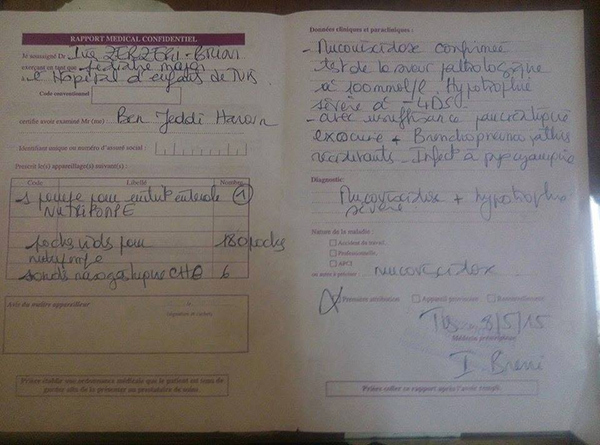 RAPPORT MEDICAL CONFIDENTIEL
Je soussigné Dr Ines ZERZERI - BRINI
exerçant en tant que pédiatre major
à l'Hôpital d'enfants de Tunis
Code conventionnel
certifie avoir examiné Mr (me) : Ben Jeddi Haroun
Identifiant unique ou numéro d'assuré social :
Prescrit le(s) appareillage(s) suivant(s) :
Code Libellé Nombre
1 pompe pour nutrit° entérale 1
NUTRIPOMPE
poches vides pour 180 poches
nutripompe
sonde nasogastrique CH8 6
Avis du maître appareilleur
Signature et cachet
Prière établir une ordonnance médicale que le patient est tenu de
garder afin de la présenter au prestataire de soins.
Données cliniques et paracliniques :
- Mucoviscidose confirmée
test de la sueur pathologique
à 100 mmol/l. Hypotrophie
sévère à - 4DS.
- avec insuffisance pancréatique
exocrine + Bronchopneumopathies
récidivantes - Infect° à pyocyanique
Diagnostic:
Mucoviscidose + hypotrophie
sévère
Nature de la maladie
Accident de travail,
Professionnelle,
APCI
ou autre à préciser : mucoviscidose
X Première attribution Appareil provisoire Renouvellement
Tunis 8/5/15
Médecin prescripteur
I. Brini
Prière coller ce rapport après l'avoir rempli.